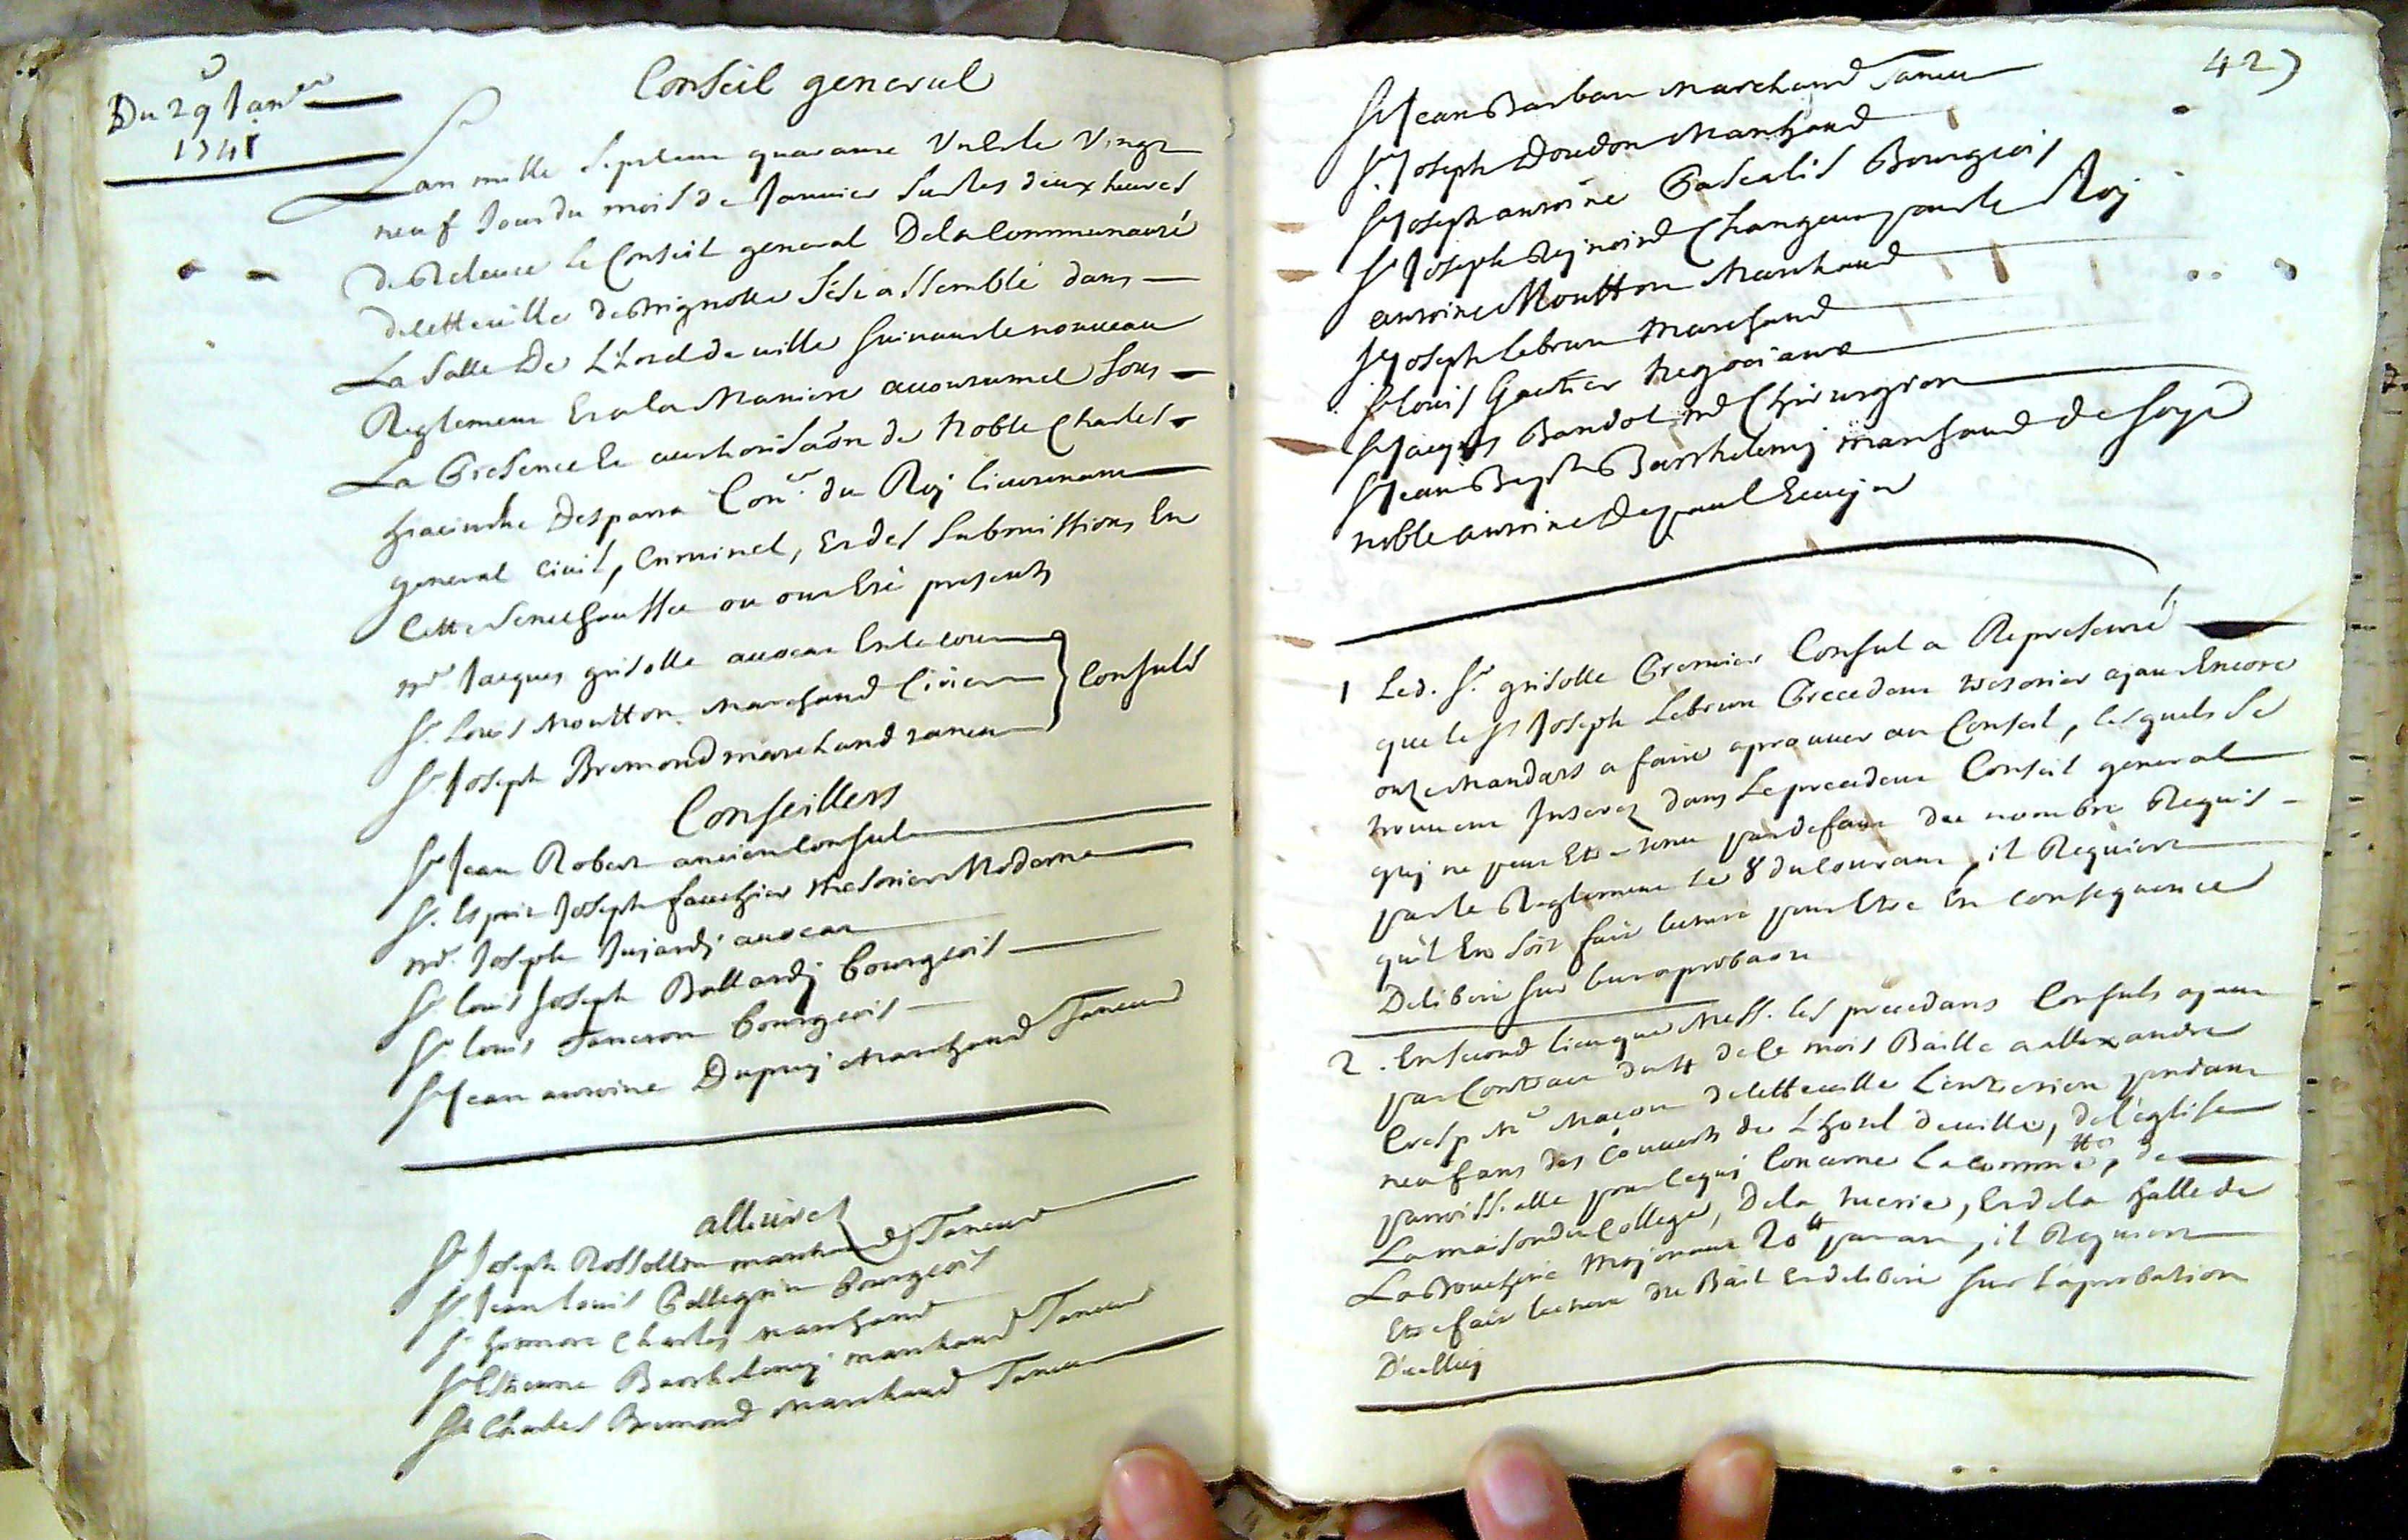 Du 29 Janer
1741
Conseil general
Lan mille septcens quarante Un & le Vingt
neuf Jour du mois de Januier sur les deux heures
de Releuée le Conseil general De la Communauté
de cette uille de Brignolle s'est assemblé dans
La Salle De L'hotel de uille suiuant le nouueau
Reglement Et a la Maniere accoutumée sous
La Presence & authorisaõn de Noble Charles
hyacinthe Desparra Coner. du Roy lieutenant
general Ciuil, Criminel, Et des submissions En
Cette Senechaussée ou ont Eté presents
Me. Jacques grisolle auocat En la cour
Sr. Louis Moutton Marchand Cirier
Sr Joseph Bremond marchand taneur
Consuls
Conseillers
Sr Jean Robert ancien Consul
Sr. Esprit Joseph fauchier thresorier Moderne
Me. Joseph Jujardy auocat
Sr. louis Joseph Ballardy bourgeois
Sr. louis tancron bourgeois
Sr Jean antoine Dupuy Marchand Taneur
alliurés
Sr Joseph Rossollin marchand Taneur
Sr. Jean louis Pellegrin bourgeois
Sr honnoré Charles Marchand
Sr Estienne Barthelemy marchand Taneur
Sr Charles Bremond Marchand Taneur
42)
Sr Jean Barban Marchand Taneur
Sr. Joseph Doudon Marchand
Sr Joseph antoine Pascalis Bourgeois
Sr Joseph Reynoird Changeur pour le Roy
antoine Moutton Marchand
Sr Joseph lebrun Marchand
Sr louis Gautier Negociant
Sr Jacques Bandol Me Chirurgien
Sr Jean Bapte Barthelemy marchand de soye
noble antoine Depaul Ecuyer
1 Led. Sr. grisolle Premier Consul a Representé
que le Sr Joseph Lebrun Precedent tresorier ayant Encore
onze Mandats a faire aprouuer au Conseil, lesquels se
trouuent Inserez dans Le precedent Conseil general
quy ne peut Etre tenu par defaut du nombre Requis
par le Reglement le 8 du Courant, il Requiert
qu'il En soit fait lecture pour Etre En consequence
Deliberé sur leur aprobaõn
2. En second lieu que Mess. les precedans Consuls ayant
par Contract du 4 de Ce mois Baillé a allexandre
Cresp Me Maçon de cette uille L'entretien pendant
neuf ans des Couuerts de L'hotel de uille, de l'eglise
parroissialle pour Ce qui Concerne la commté, de
La maison du College, De la tuerie, Et de la halle de
La Boucherie Moyenant 20 ℔ par an, il Requiert
Etre fait lecture du Bail Et deliberé sur l'aprobation
D'icelluy